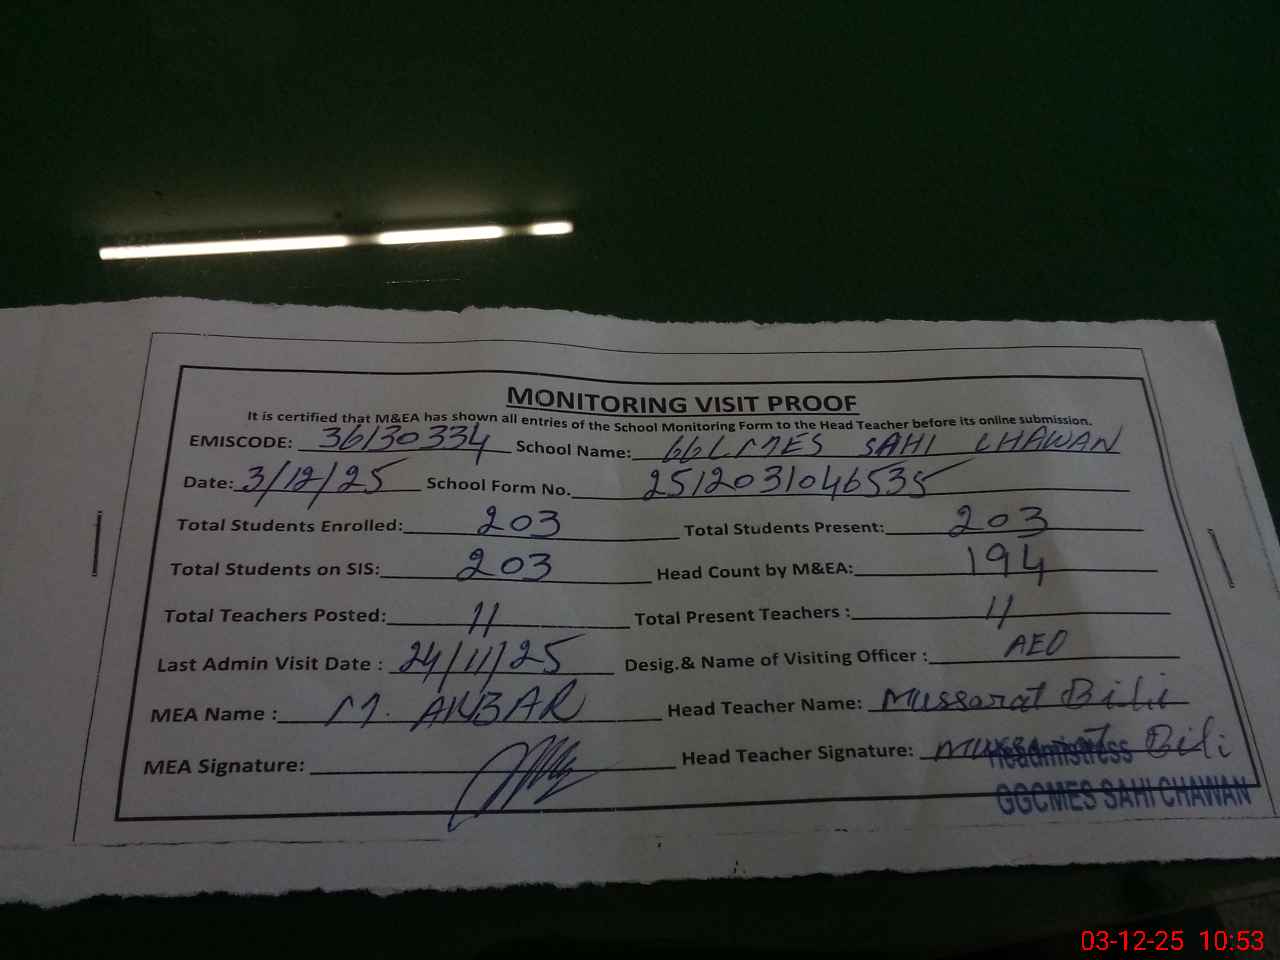 MONITORING VISIT PROOF
It is certified that M&EA has shown all entries of the School Monitoring Form to the Head Teacher before its online submission.
EMISCODE: 36130334 School Name: GGCMES SAHI CHAWAN
Date: 3/12/25 School Form No. 2512031046535
Total Students Enrolled: 203 Total Students Present: 203
Total Students on SIS: 203 Head Count by M&EA: 194
Total Teachers Posted: 11 Total Present Teachers : 11
Last Admin Visit Date : 24/11/25 Desig.& Name of Visiting Officer : AEO
MEA Name : M. AKBAR Head Teacher Name: Mussarat Bibi
MEA Signature: Head Teacher Signature: Mussarat Bibi
Headmistress
GGCMES SAHI CHAWAN
03-12-25 10:53